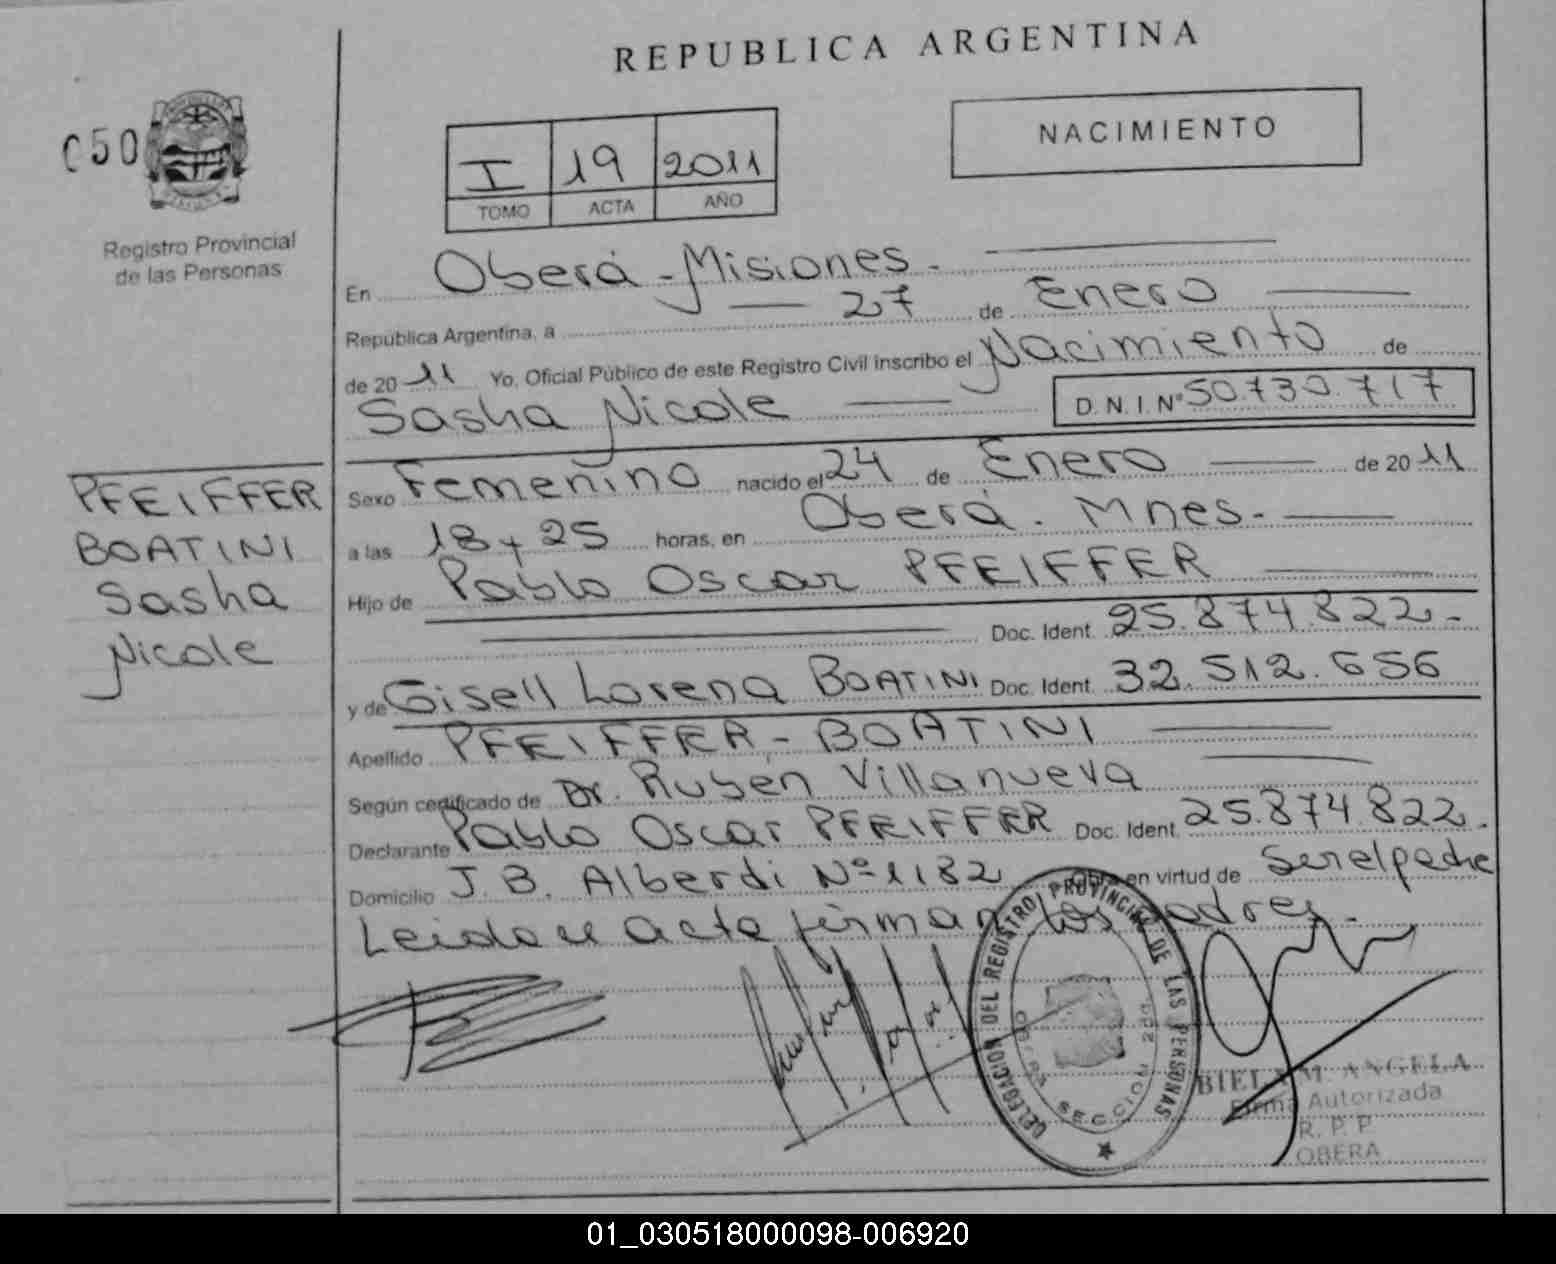 REPUBLICA ARGENTINA
050
NACIMIENTO
I 19 2011
TOMO ACTA AÑO
Registro Provincial
de las Personas
En Oberá - Misiones.
República Argentina, a 27 de Enero
de 2011 Yo, Oficial Público de este Registro Civil inscribo el Nacimiento de
Sasha Nicole D.N.I.Nº 50.730.717
PFEIFFER
BOATINI
Sasha
Nicole
Sexo Femenino nacido el 24 de Enero de 2011
a las 18 y 25 horas, en Oberá. Mnes.
Hijo de Pablo Oscar PFEIFFER
Doc. Ident. 25.874.822.
y de Gisell Lorena BOATINI Doc. Ident. 32.512.656
Apellido PFEIFFER - BOATINI
Según certificado de Dr. Rubén Villanueva
Declarante Pablo Oscar PFEIFFER Doc. Ident. 25.874.822.
Domicilio J.B. Alberdi Nº 1182 Obra en virtud de Ser el padre
Leida el acta firman los padres.
DELEGACION DEL REGISTRO PROVINCIAL DE LAS PERSONAS
SECCION 2da
BIELA M. ANGELA
Firma Autorizada
R. P. P.
OBERA
01_030518000098-006920